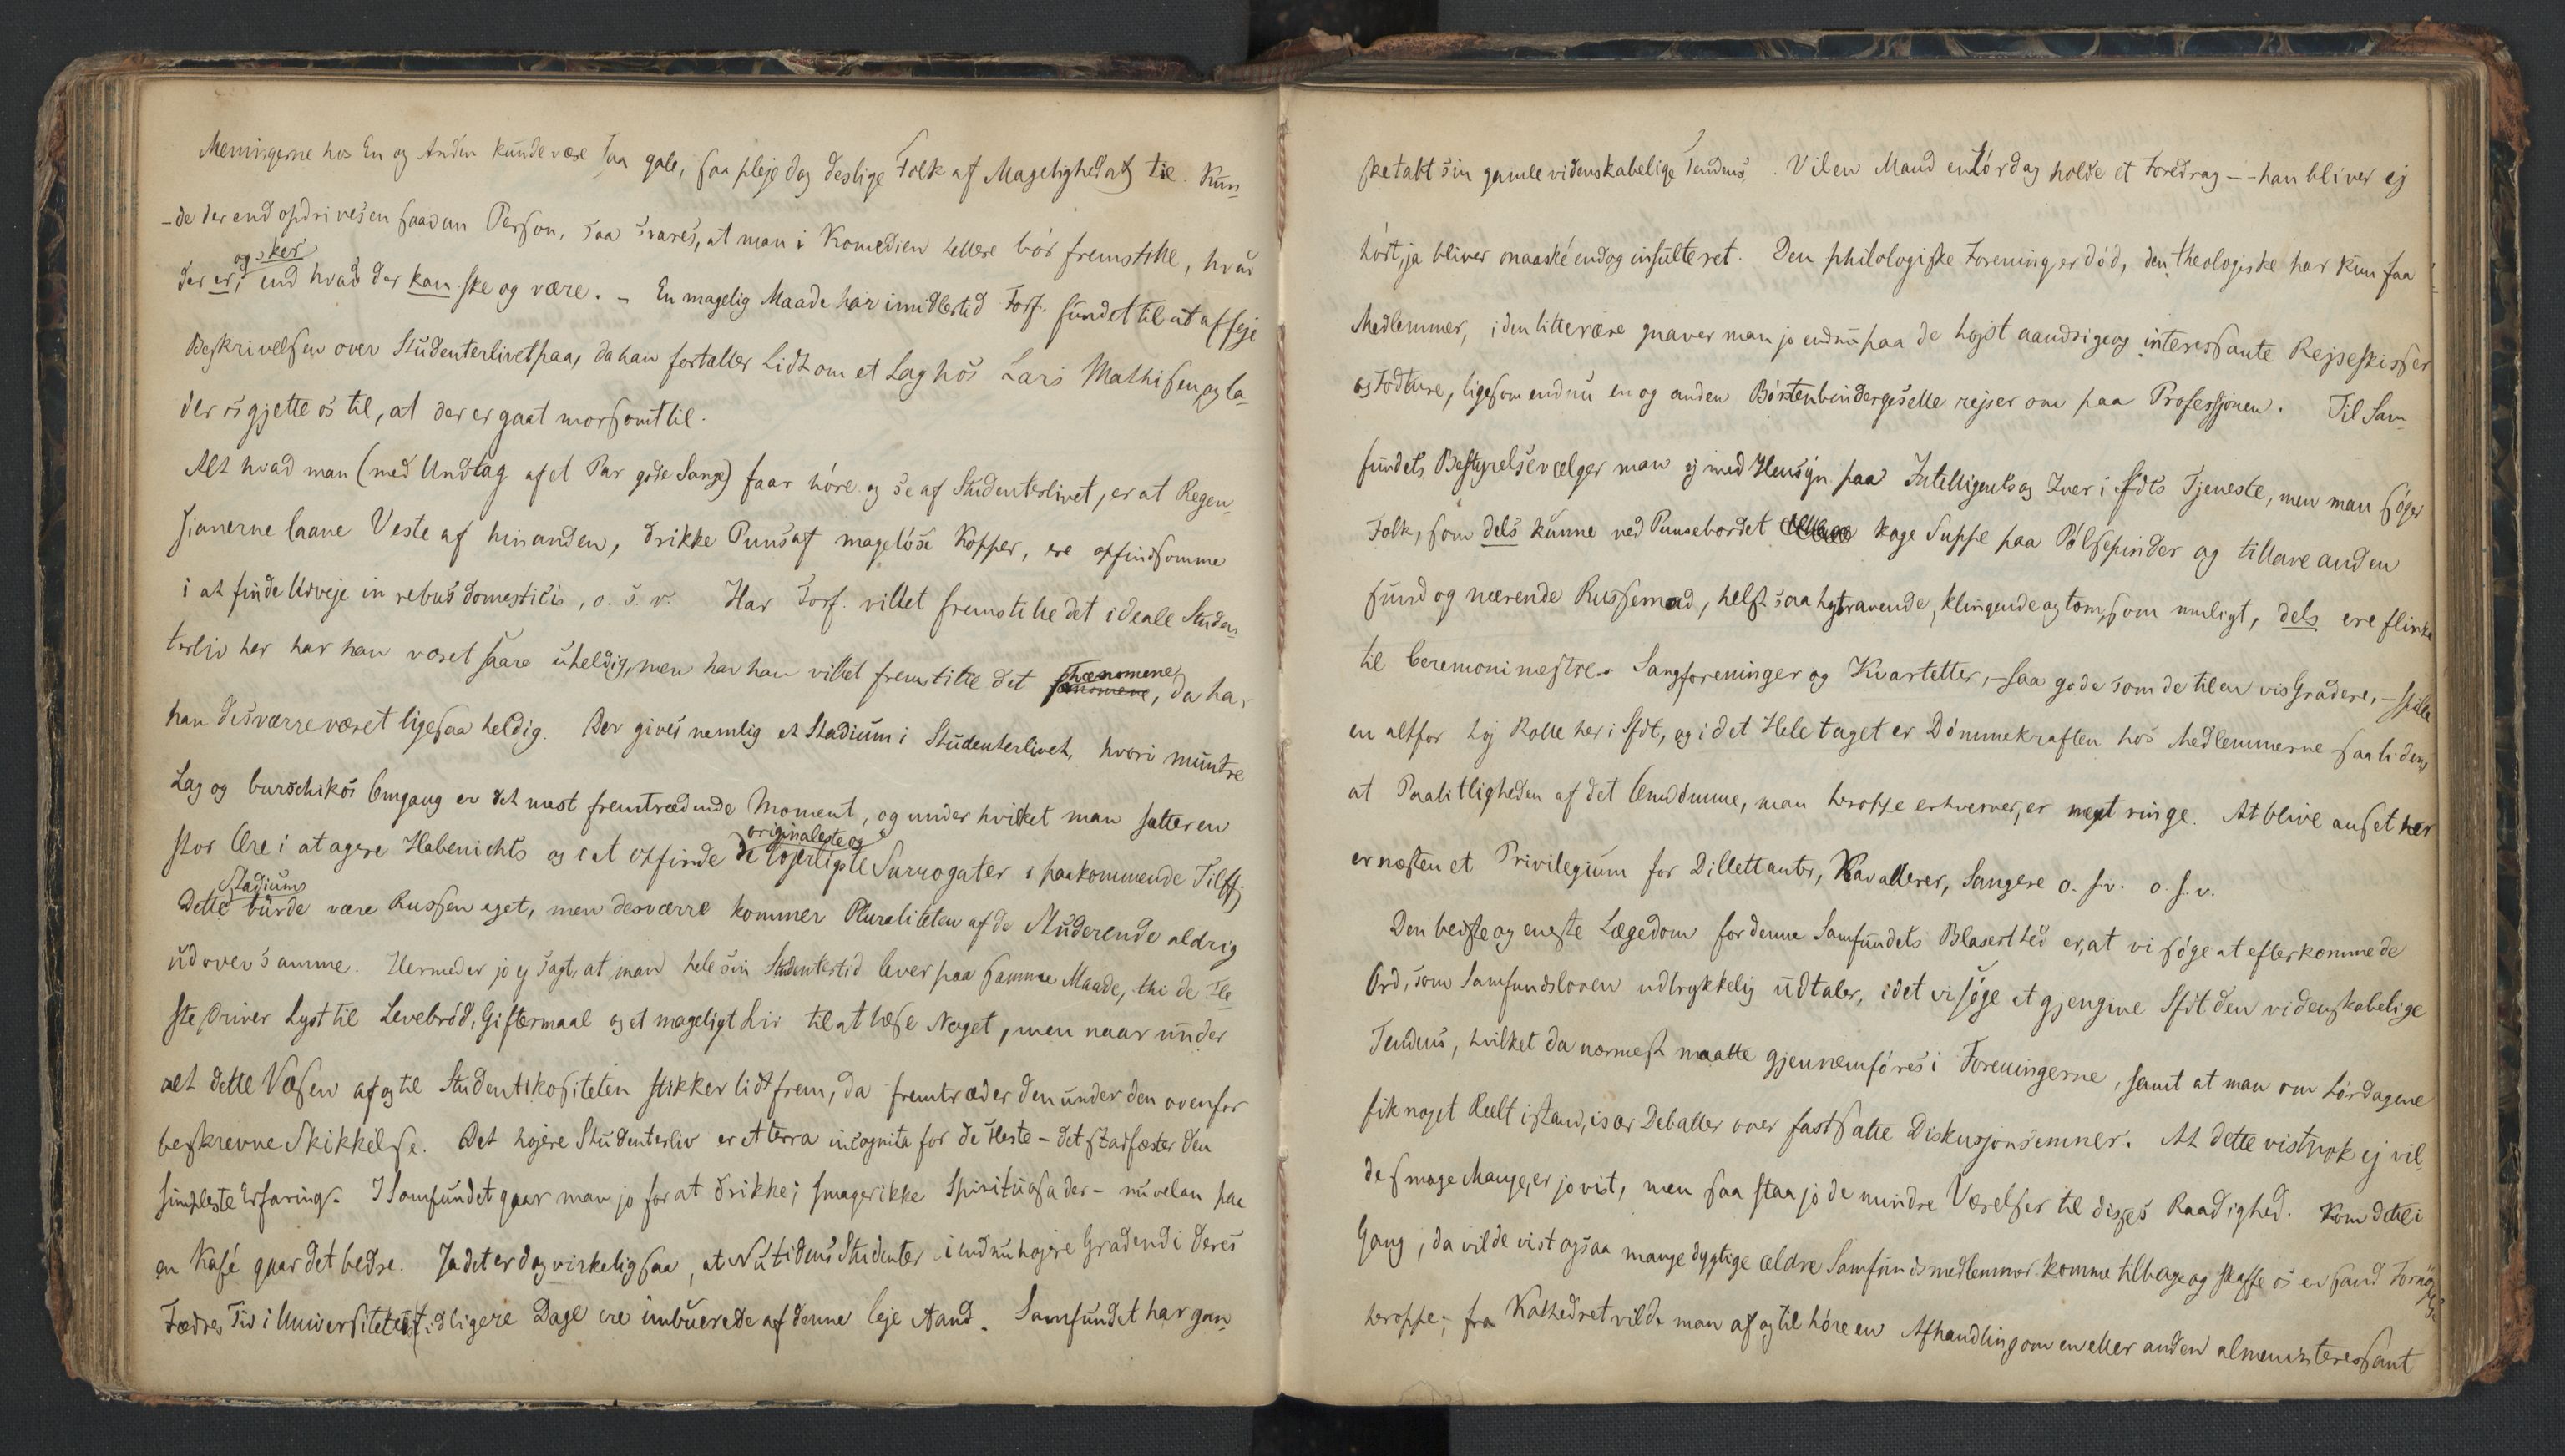 Meningerne hos En og Anden kunde være saa gale, saa pleje dog deslige Folk af Magelighed at tie. Kun-
-de der end opdrives en saadan Person, saa svares, at man i Komedien hellere bör fremstille, hvad
der er, og sker end hvad der kan ske og være. – En magelig Maade har imidlertid Forf. fundet til at affeje
Beskrivelsen over Studenterlivet paa, da han fortæller Lidt om et Lag hos Lars Mathisen, og la-
der os gjette os til, at der er gaat morsomt til.
Alt hvad man (med Undtag af et Par gode Sange) faar höre og se af Studenterlivet, er at Regen-
sianerne laane Veste af hinanden, drikke Puns af mageløse Kopper, ere opfindsomme
i at finde Udveje in rebus domesticis, o. s. v. Har Forf. villet fremstille det ideale Studen-
terliv her har han været saare uheldig, men har han villet fremstille det phænomene, da har
han desværre været ligesaa heldig. Der gives nemlig et Stadium i Studenterlivet, hvori muntre
Lag og burschikos Omgang er det mest fremtrædende Moment, og under hvilket man sætter en
stor Ære i at agere Habenichts og i at opfinde de originaleste og løjerligste Surrogater i paakommende Tilff.
Dette Stadium burde være Russen eget, men desværre kommer Pluraliteten af de Studerende aldrig
ud over samme. Hermed er jo ej sagt, at man hele sin Studentertid lever paa samme Maade, thi de Fle-
ste driver Lyst til Levebröd, Giftermaal og et mageligt Liv til at læse Noget, men naar under
alt dette Væsen af og til Studentikositeten stikker lidt frem, da fremtræder den under den ovenfor
beskrevne Skikkelse. Det højere Studenterliv er et terra incognita for de Fleste – det stadfæster den
simpleste Erfaring. I Samfundet gaar man jo for at drikke; smager ikke Spirituosa der – nu velan paa
en Kafé gaar det bedre. Ja det er dog virkelig saa, at Nutidens Studenter i endnu højere Grad end i deres
Fædres Tid i Universitetets tidligere Dage ere imbuerede af denne leje Aand. Samfundet har gan-
ske tabt sin gamle videnskabelige Tendens. Vil en Mand en Lördag holde et Foredrag -- han bliver ej
hört, ja bliver maaské endog insulteret. Den philologiske Forening er död, den theologiske har kun faa
Medlemmer, i den litterære gnaver man jo endnu paa de højst aandrige og interessante Rejseskisser
og Fodture, ligesom endnu en og anden Börstenbindergeselle rejser om paa Professjonen. Til Sam-
fundets Bestyrelse vælger man ej med Hensyn paa Intelligents og Iver i Sfdts Tjeneste, men man söger
Folk, som dels kunne ved Punsebordet koge Suppe paa Pölsepinder og tillave anden
sund og nærende Russemad, helst saa højtravende, klingende og tom, som muligt, dels ere flinke
til Ceremonimestre. Sangforeninger og Kvartetter, – saa gode som de til en vis Grad ere, – spille
en altfor höj Rolle her i Sfdt, og i det Hele taget er Dömmekraften hos Medlemmerne saa liden,
at Paalitligheden af det Omdömme, man heroppe erhverver, er meget ringe. At blive anset her
er næsten et Privilegium for Dillettanter, Kavallerer, Sangere o. s. v. o. s. v.
Den bedste og eneste Lægedom for denne Samfundets Blaserthed er, at vi söge at efterkomme de
Ord, som Samfundsloven udtrykkelig udtaler, idet vi söge at gjengive Sfdt den videnskabelige
Tendens, hvilket da nærmest maatte gjennemföres i Foreningerne, samt at man om Lördagene
fik noget Reelt istand, især Debatter over fastsatte Diskusjonsemner. At dette vistnok ej vil-
de smage Mange, er jo vist, men saa staa jo de mindre Værelser til disses Raadighed. Kom dette i
Gang, da vilde vist ogsaa mange dygtige ældre Samfundsmedlemmer komme tilbage og skaffe os en sand Fornöjelse
heroppe; fra Kathedret vilde man af og til höre en Afhandling om en eller anden almeninteressant